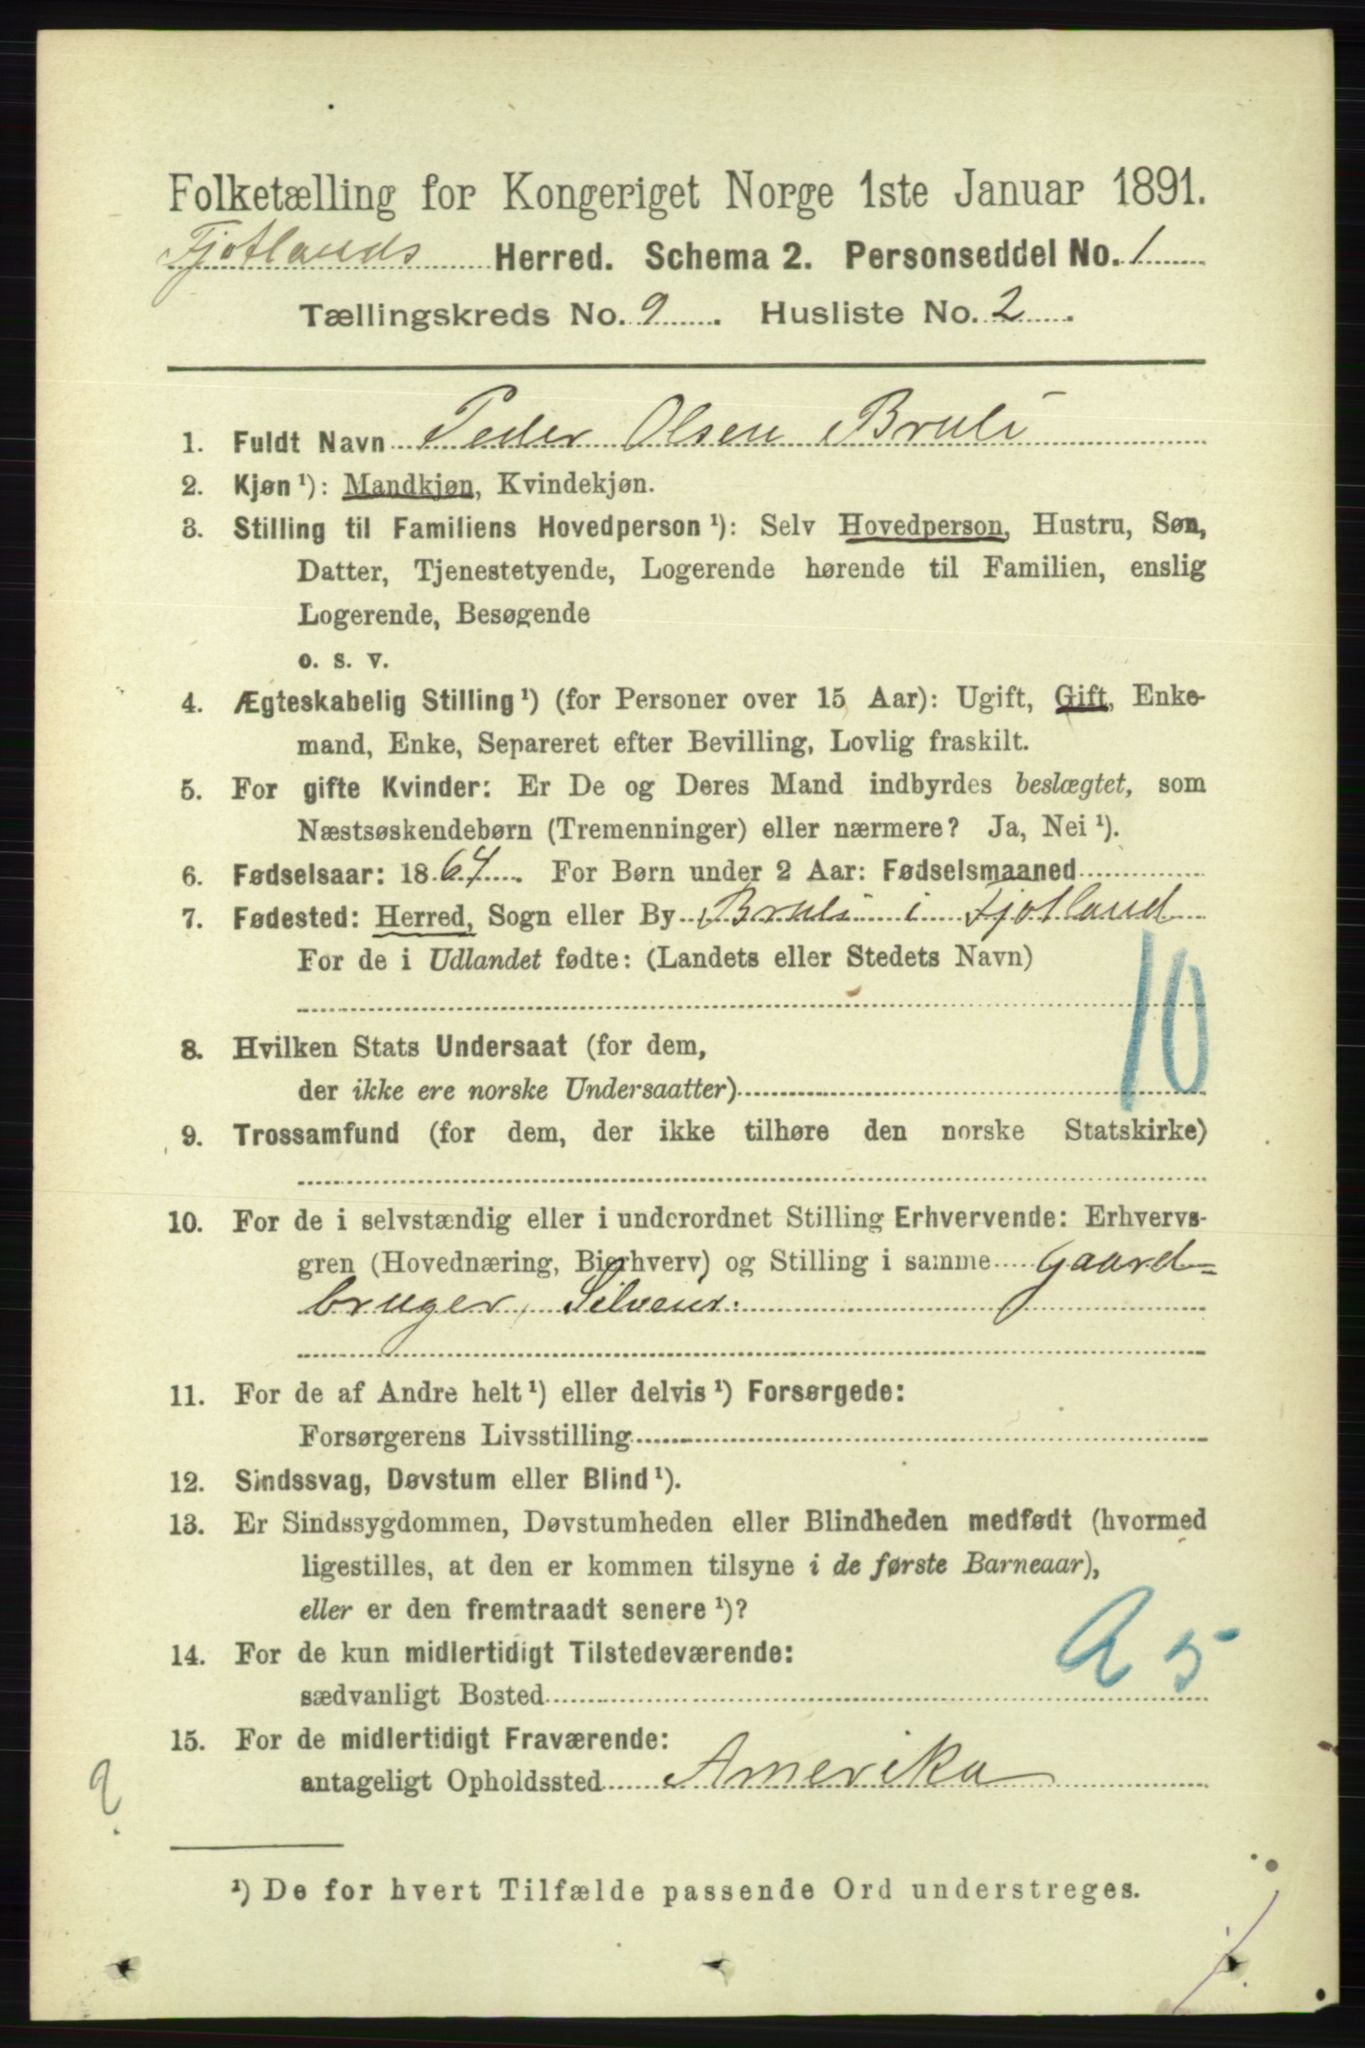 Folketælling for Kongeriget Norge 1ste Januar 1891.
Fjotlands Herred. Schema 2. Personseddel No. 1
Tællingskreds No. 9. Husliste No. 2.
1. Fuldt Navn Peder Olsen Bruli
2. Kjøn ¹): Mandkjøn, Kvindekjøn.
3. Stilling til Familiens Hovedperson ¹): Selv Hovedperson, Hustru, Søn,
Datter, Tjenestetyende, Logerende hørende til Familien, enslig
Logerende, Besøgende
o. s. v.
4. Ægteskabelig Stilling ¹) (for Personer over 15 Aar): Ugift, Gift, Enke-
mand, Enke, Separeret efter Bevilling, Lovlig fraskilt.
5. For gifte Kvinder: Er De og Deres Mand indbyrdes beslægtet, som
Næstsøskendebørn (Tremenninger) eller nærmere? Ja, Nei ¹).
6. Fødselsaar: 1864. For Børn under 2 Aar: Fødselsmaaned
7. Fødested: Herred, Sogn eller By Bruli i Fjotland
For de i Udlandet fødte: (Landets eller Stedets Navn)
10
8. Hvilken Stats Undersaat (for dem,
der ikke ere norske Undersaatter)
9. Trossamfund (for dem, der ikke tilhøre den norske Statskirke)
10. For de i selvstændig eller i underordnet Stilling Erhvervende: Erhvervs-
gren (Hovednæring, Bierhverv) og Stilling i samme Gaard=
bruger, Selveier.
11. For de af Andre helt ¹) eller delvis ¹) Forsørgede:
Forsørgerens Livsstilling
12. Sindssvag, Døvstum eller Blind ¹).
13. Er Sindssygdommen, Døvstumheden eller Blindheden medfødt (hvormed
ligestilles, at den er kommen tilsyne i de første Barneaar),
eller er den fremtraadt senere ¹)?
14. For de kun midlertidigt Tilstedeværende:
sædvanligt Bosted
a 5
15. For de midlertidigt Fraværende:
antageligt Opholdssted Amerika
¹) De for hvert Tilfælde passende Ord understreges.